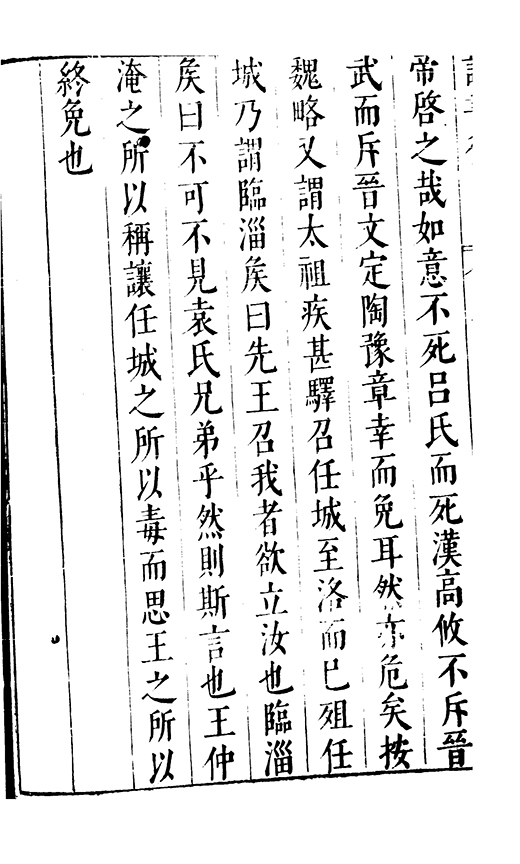 帝啓之哉如意不死吕氏而死漢高攸不斥晉
武而斥晉文定陶豫章幸而免耳然亦危矣按
魏略又謂太祖疾甚驛召任城至洛而已殂任
城乃謂臨淄矦曰先王召我者欲立汝也臨淄
矦曰不可不見袁氏兄弟乎然則斯言也王仲
淹之所以稱讓任城之所以毒而思王之所以
終免也